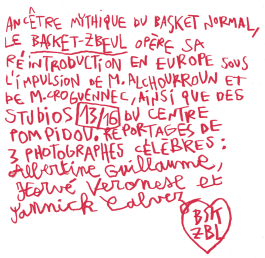 ANCÊTRE MYTHIQUE DU BASKET NORMAL,
LE BASKET-ZBEUL OPÈRE SA
RÉINTRODUCTION EN EUROPE SOUS
L'IMPULSION DE M. ALCHOUKROUN ET
DE M. CROGUENNEC, AINSI QUE DES
STUDIOS 13/16 DU CENTRE
POMPIDOU. REPORTAGES DE
3 PHOTOGRAPHES CÉLÈBRES :
Albertine Guillaume,
Hervé Véronese et
Yannick Calvez
BSK
ZBL